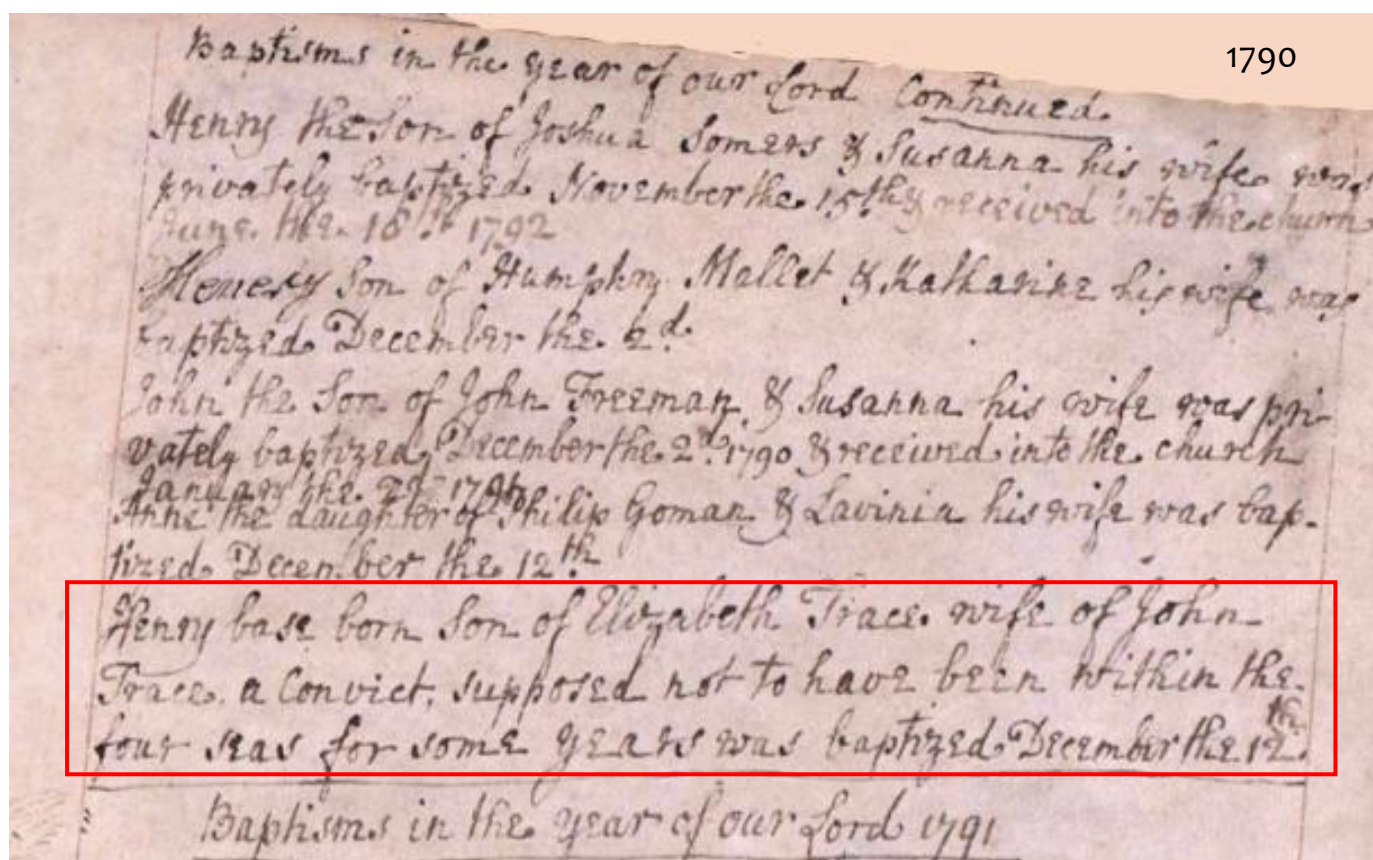 1790
Baptisms in the year of our Lord Continued.
Henry the Son of Joshua Somers & Susanna his wife was
privately baptized November the 15th & received into the church
June the 18th 1792
Henery Son of Humphry Mallet & Katharine his wife was
baptized December the 2d.
John the Son of John Freeman & Susanna his wife was pri-
vately baptized December the 2d. 1790 & received into the church
January the 1791
Anne the daughter of Philip Goman & Lavinia his wife was bap-
tized December the 12th
Henry base born Son of Elizabeth Trace wife of John
Trace a Convict, supposed not to have been within the
four seas for some years was baptized December the 12th.
Baptisms in the year of our Lord 1791